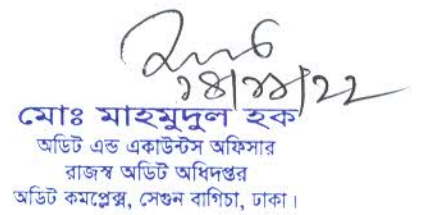 ১৪/১১/২২
মোঃ মাহমুদুল হক
অডিট এন্ড একাউন্টস অফিসার
রাজস্ব অডিট অধিদপ্তর
অডিট কমপ্লেক্স, সেগুন বাগিচা, ঢাকা।